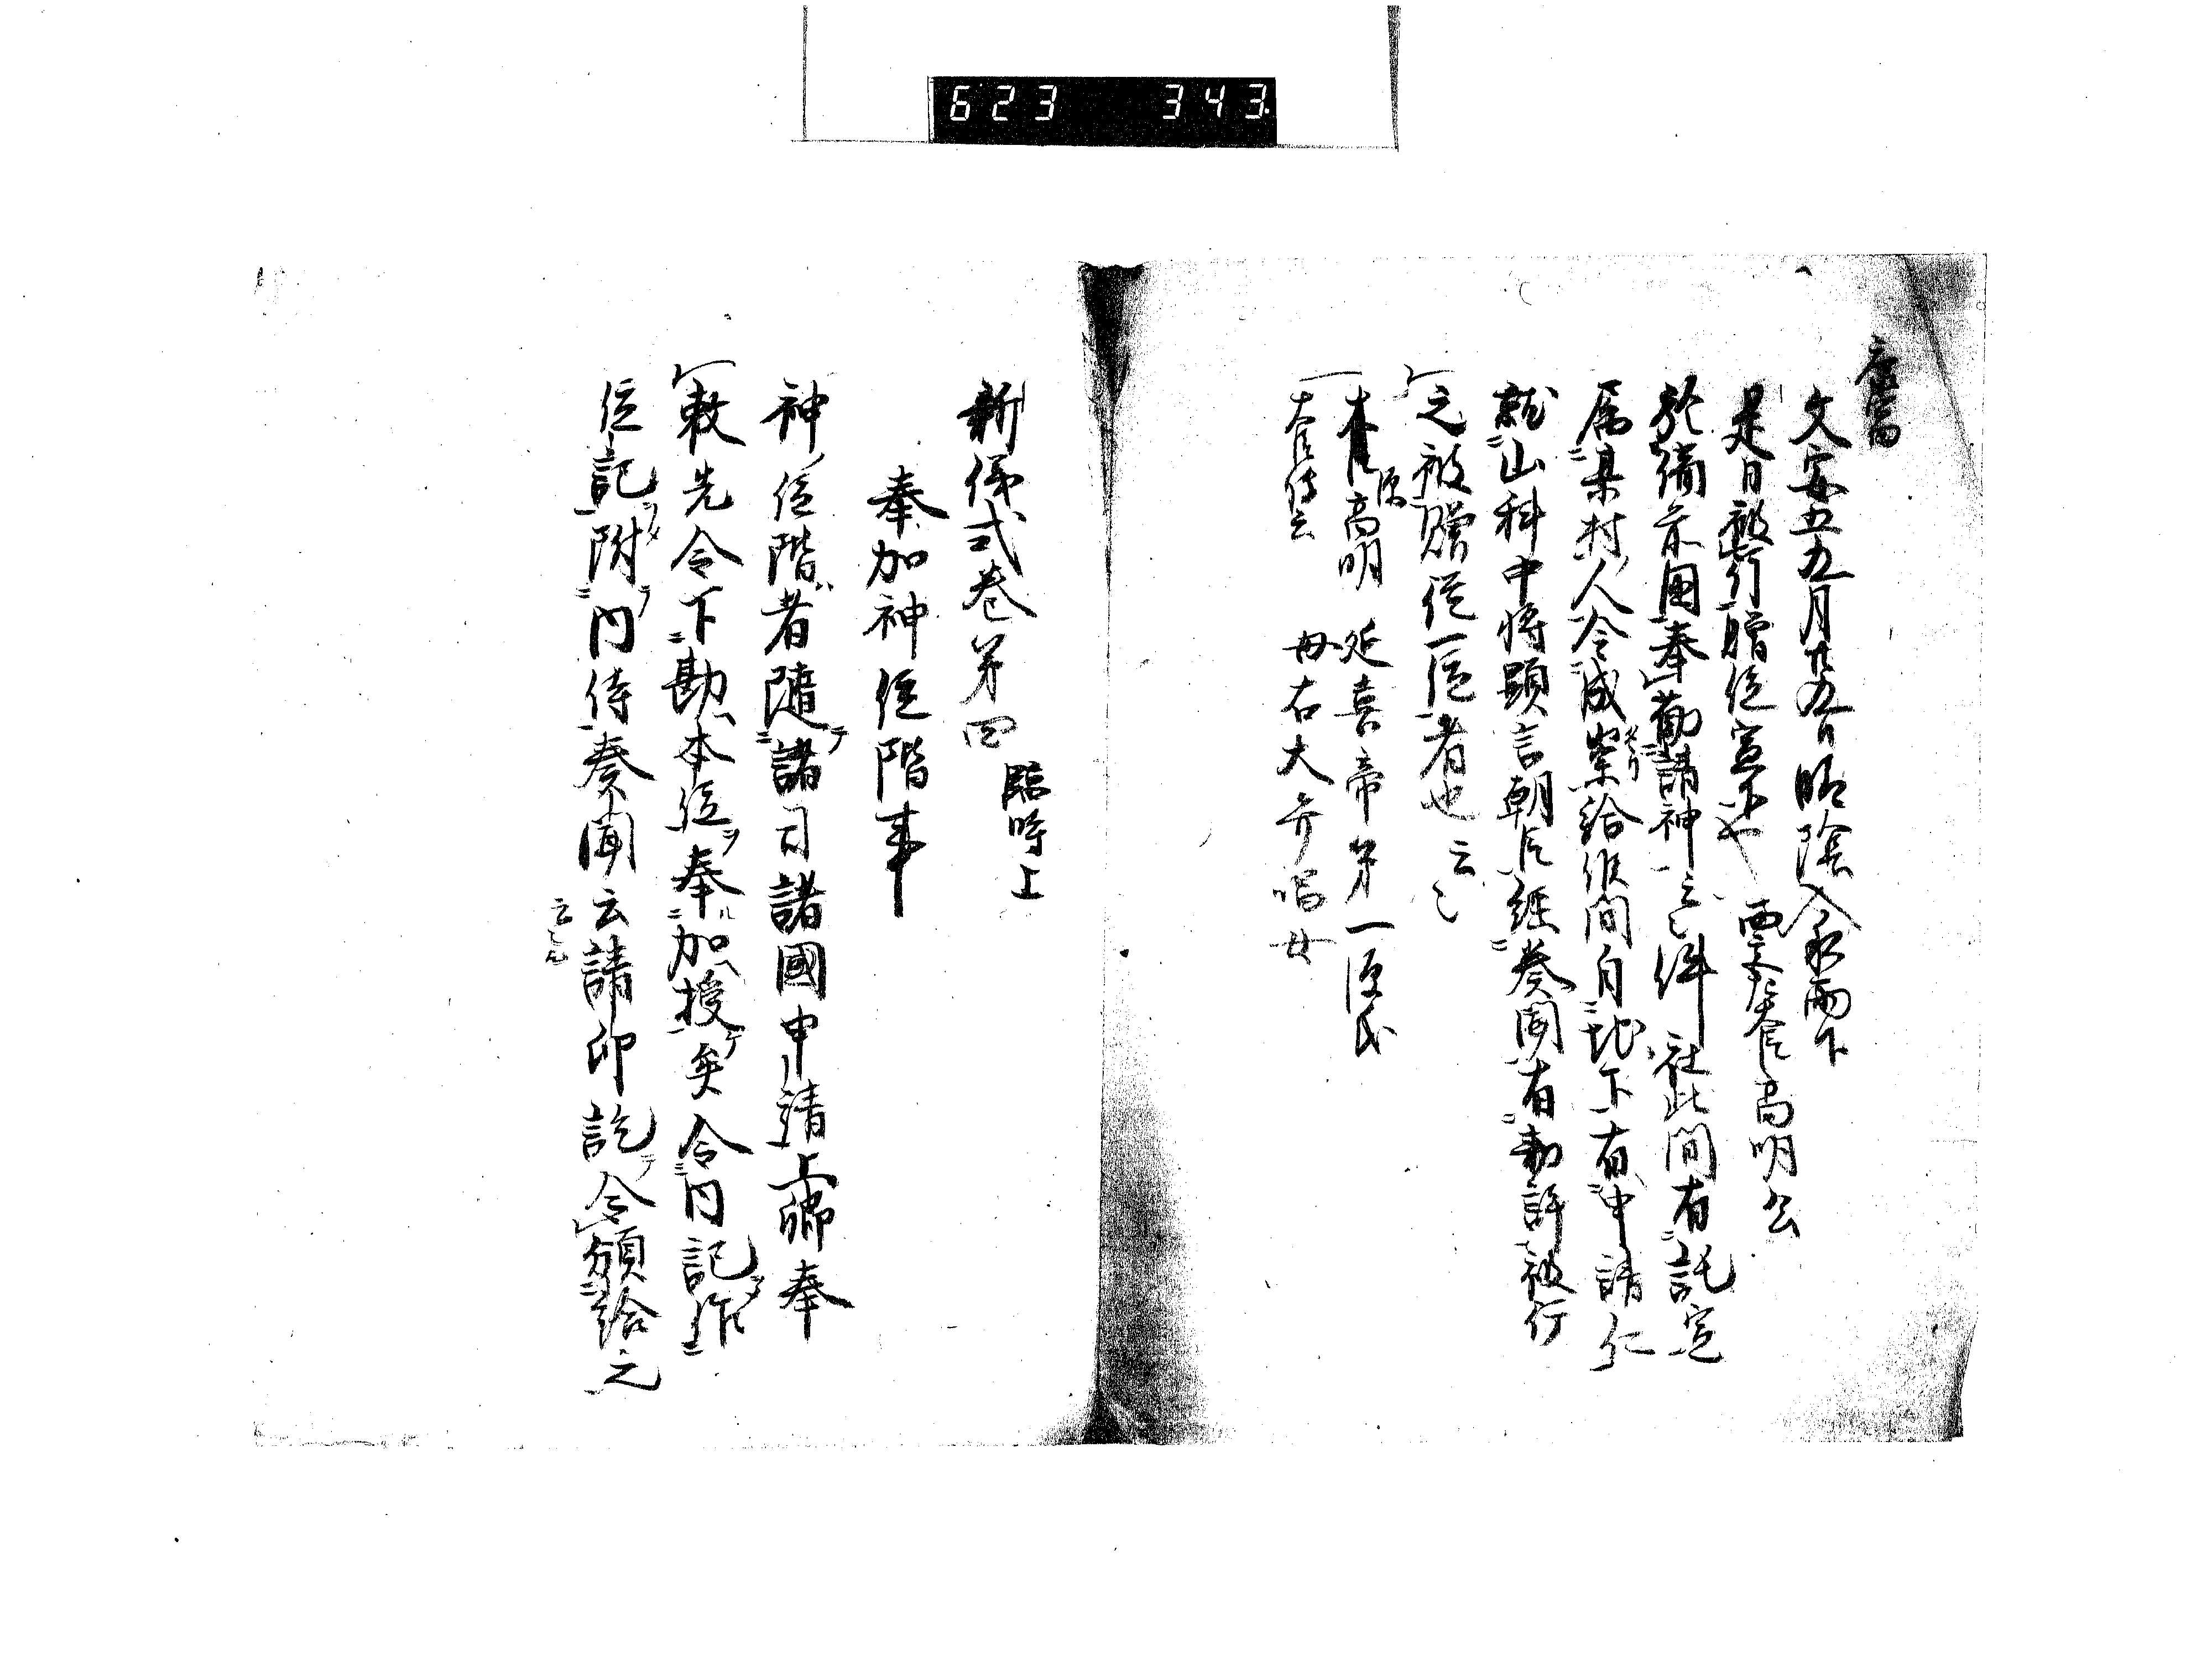 623 343
文安五五月廿五日晴陰入夜雨下
是日被行贈位宣下也 西宮左大臣高明公
於備前国奉勧請神云々件社此間有託宣
属某村人令成祟給候間自地下有申請仁
就山科中将顕言朝臣経奏聞有勅許被行
之被贈従一位者也云々
左大臣源高明 延喜帝第一源氏
母右大弁唱女
新儀式巻第四 臨時上
奉加神位階事
神位階者随諸司諸國申請上卿奉
敕先令下勘本位奉加授矣令内記作
位記附内侍奏聞云請印訖令頒給之
云々